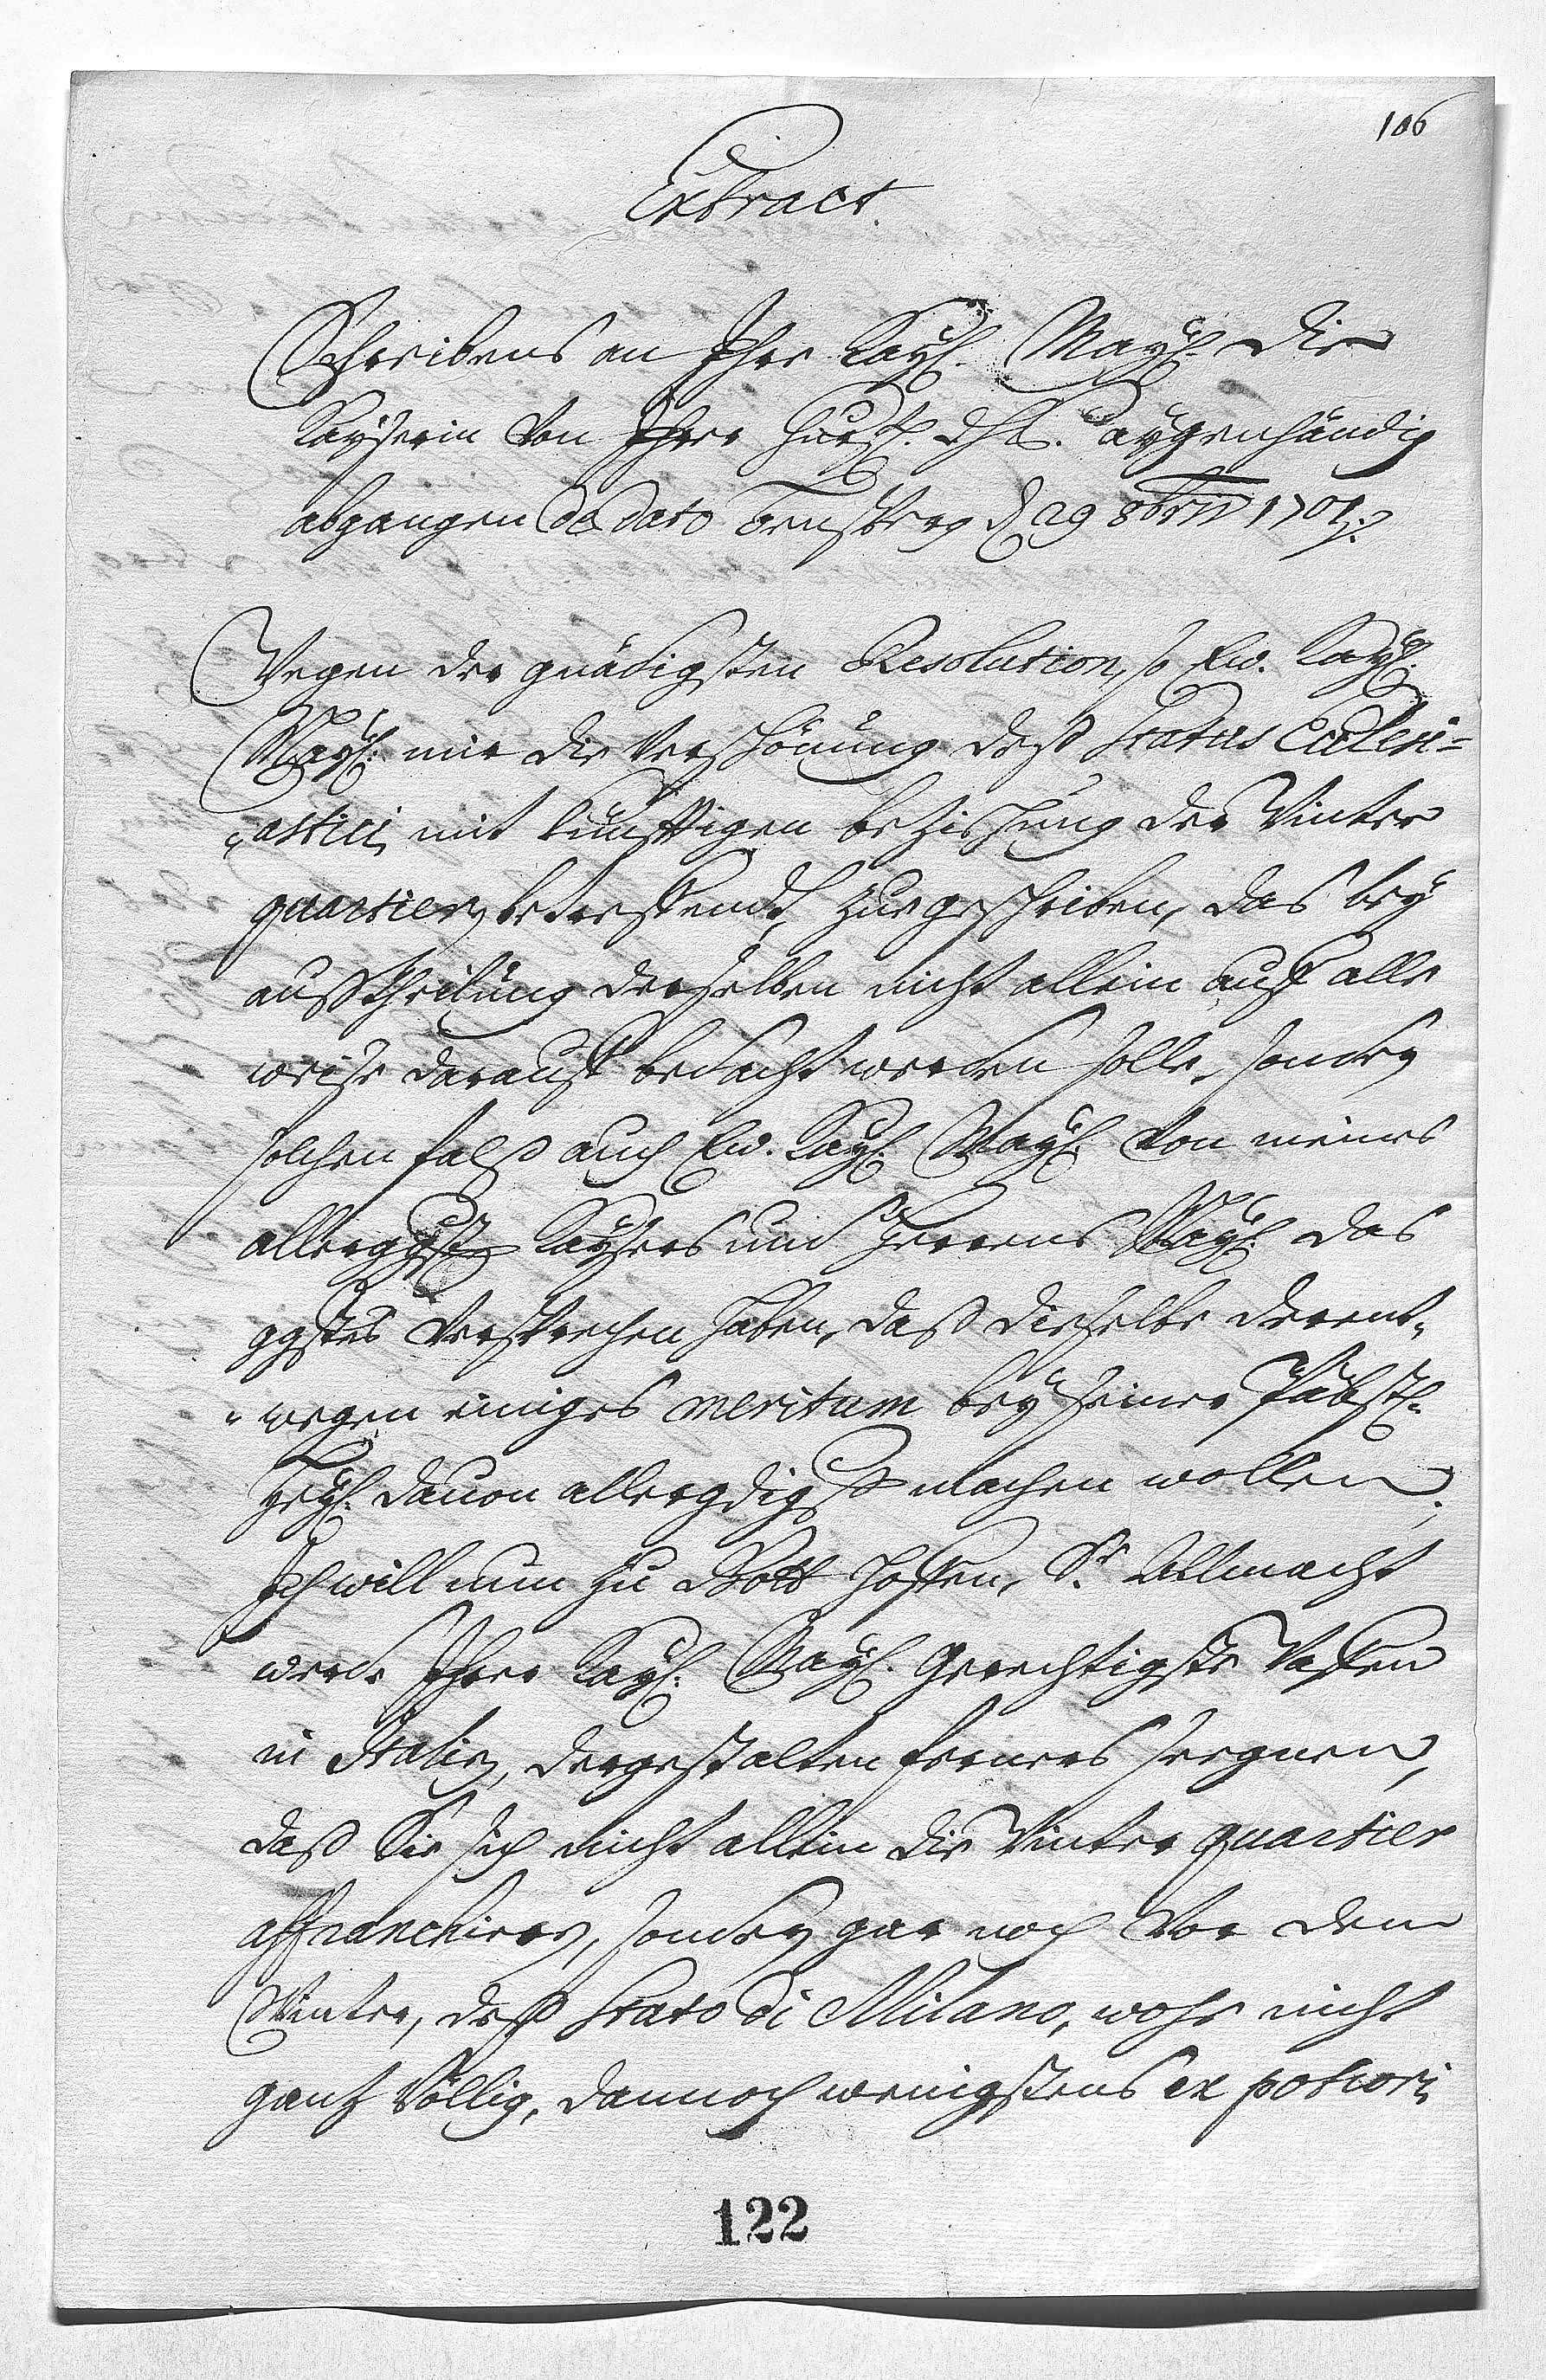 106
Extract.
Schreibens an Ihre Kayß. Mayß. die
Kayserin Von Ihrer Churfl. dhl. aygenhändig
abgangen de dato Bensberg d 29 8bris 1701.
Wegen der gnädigsten Resolution, so Ew. Kayß.
Mayß. mir die Verschönung deß Status Eccleси=
astici, mit künfftigen beziehung der Winter
quartiern betreffendt, zuegeschriben, das bey
außtheilung derselben nicht allein auff alle
weiße darauff bedacht werden solle, sondern
solchen falß auch Ew. Kayß. Mayß. Von meines
allerggsten Kaysers und Herrens Mayß. das
ggstes Versprechen haben, daß dieselbe derent=
wegen einiges meritum bey seiner Päbstl.
Heyl. dauon allergdigst machen wollen;
Ich will nun zu Gott hoffen, Sr. Allmacht
werde Ihrer Kayß. Mayß. Gerechtigste Waffen
in Italien, dergestalten ferners seegnen,
daß Sie sich nicht allein die Winter quartier
affranchiren, sondern gar noch Vor dem
Winter, deß Stato di Milano, wohe nicht
gantz Völlig, dannoch wenigstens ex potiori
122